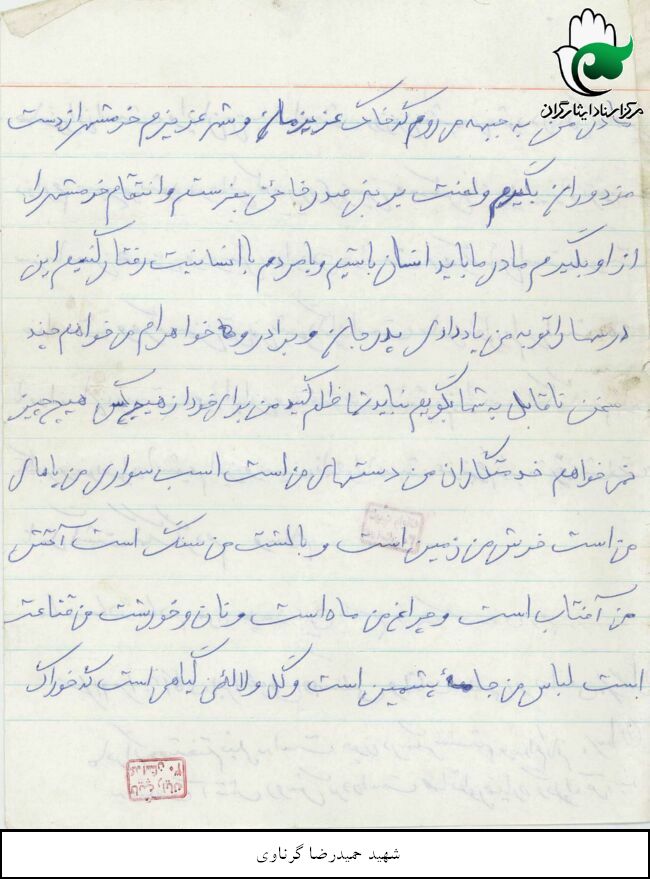 مرکز اسناد ایثارگران
مادر من به جبهه می روم که خاک عزیزمان و شهر عزیزم خرمشهر از دست
مزدوران بگیرم و لعنت بر بنی صدر خائن بفرستم و انتقام خرمشهر را
از او بگیرم مادر ما باید انسان باشیم و با مردم با انسانیت رفتار کنیم این
درسها را تو به من یاد دادی پدر جان و برادر و خواهرام می خواهم چند
سخن ناقابل به شما بگویم نباید شما ظلم کنید من برای خود از هیچ کس هیچ چیز
نمی خواهم خدمتکاران من دستهای من است اسب سواری من پاهای
من است فرش من زمین است و بالشت من سنگ است آتش
من آفتاب است و چراغ من ماه است و نان و خورشت من قناعت
است لباس من جامهٔ پشمین است و گل و لاله من گیاهی است که خوراک
شهید حمیدرضا گرناوی